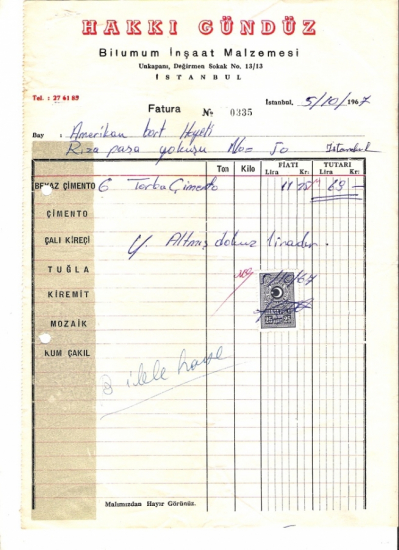 HAKKI GÜNDÜZ
Bilumum İnşaat Malzemesi
Unkapanı, Değirmen Sokak No. 13/13
İSTANBUL
Tel. : 27 61 85
Fatura № 0335 İstanbul, 5/10/1967
Bay : Amerikan bort Heyeti
Rıza paşa yokuşu No= 50 Istanbul
Ton Kilo FİATI TUTARI
Lira Kr: Lira Kr:
BEYAZ ÇİMENTO 6 Torba Çimento 69
ÇİMENTO
ÇALI KİREÇİ Y. Altmış dokuz liradır.
TUĞLA
KİREMİT
MOZAİK
KUM ÇAKIL
Malımızdan Hayır Görünüz.